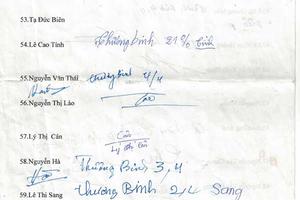 53.Tạ Đức Biên
54.Lê Cao Tính thương binh 21% binh
55.Nguyễn Văn Thái thương binh 4/4
56.Nguyễn Thị Lào Lào
57.Lý Thị Cán Cán
Lý thị Cán
58.Nguyễn Hà Thương Binh 3,4
59.Lê Thi Sang thương Binh 2/4 Sang